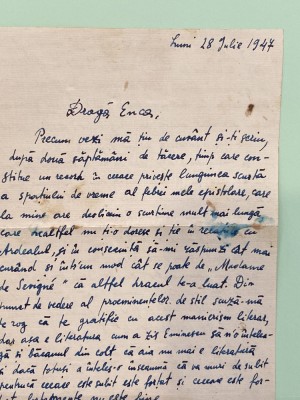 Luni 28 Iulie 1947
Dragă Enca,
Precum vezi mă țin de cuvânt și-ți scriu,
după două săptămâni de tăcere, timp care con-
stitue un record în ceeace privește lungimea scurtă
a sportului de vreme al febrei mele epistolare, care
la mine are deobicei o scurtime mult mai lungă
care dealtfel nu ți-o doresc și ție în
Ardealul, și în consecință să-mi răspunzi cât mai
curând și înticum mod cât se poate de „Madame
de Sevigné” că altfel dracul te-a luat. Din
punct de vedere al proeminentelor de stil scuză-mă
te rog că te gratific cu acest manierism literar,
dar așa e literatura cum a zis Eminescu să n'o înțelea-
gă și băcanul din colț că aia nu mai e literatură
și dacă totuși a înteles-o înseamnă că va muri de subit
pentrucă ceeace este subit este fortat și ceeace este for-
nu este bine